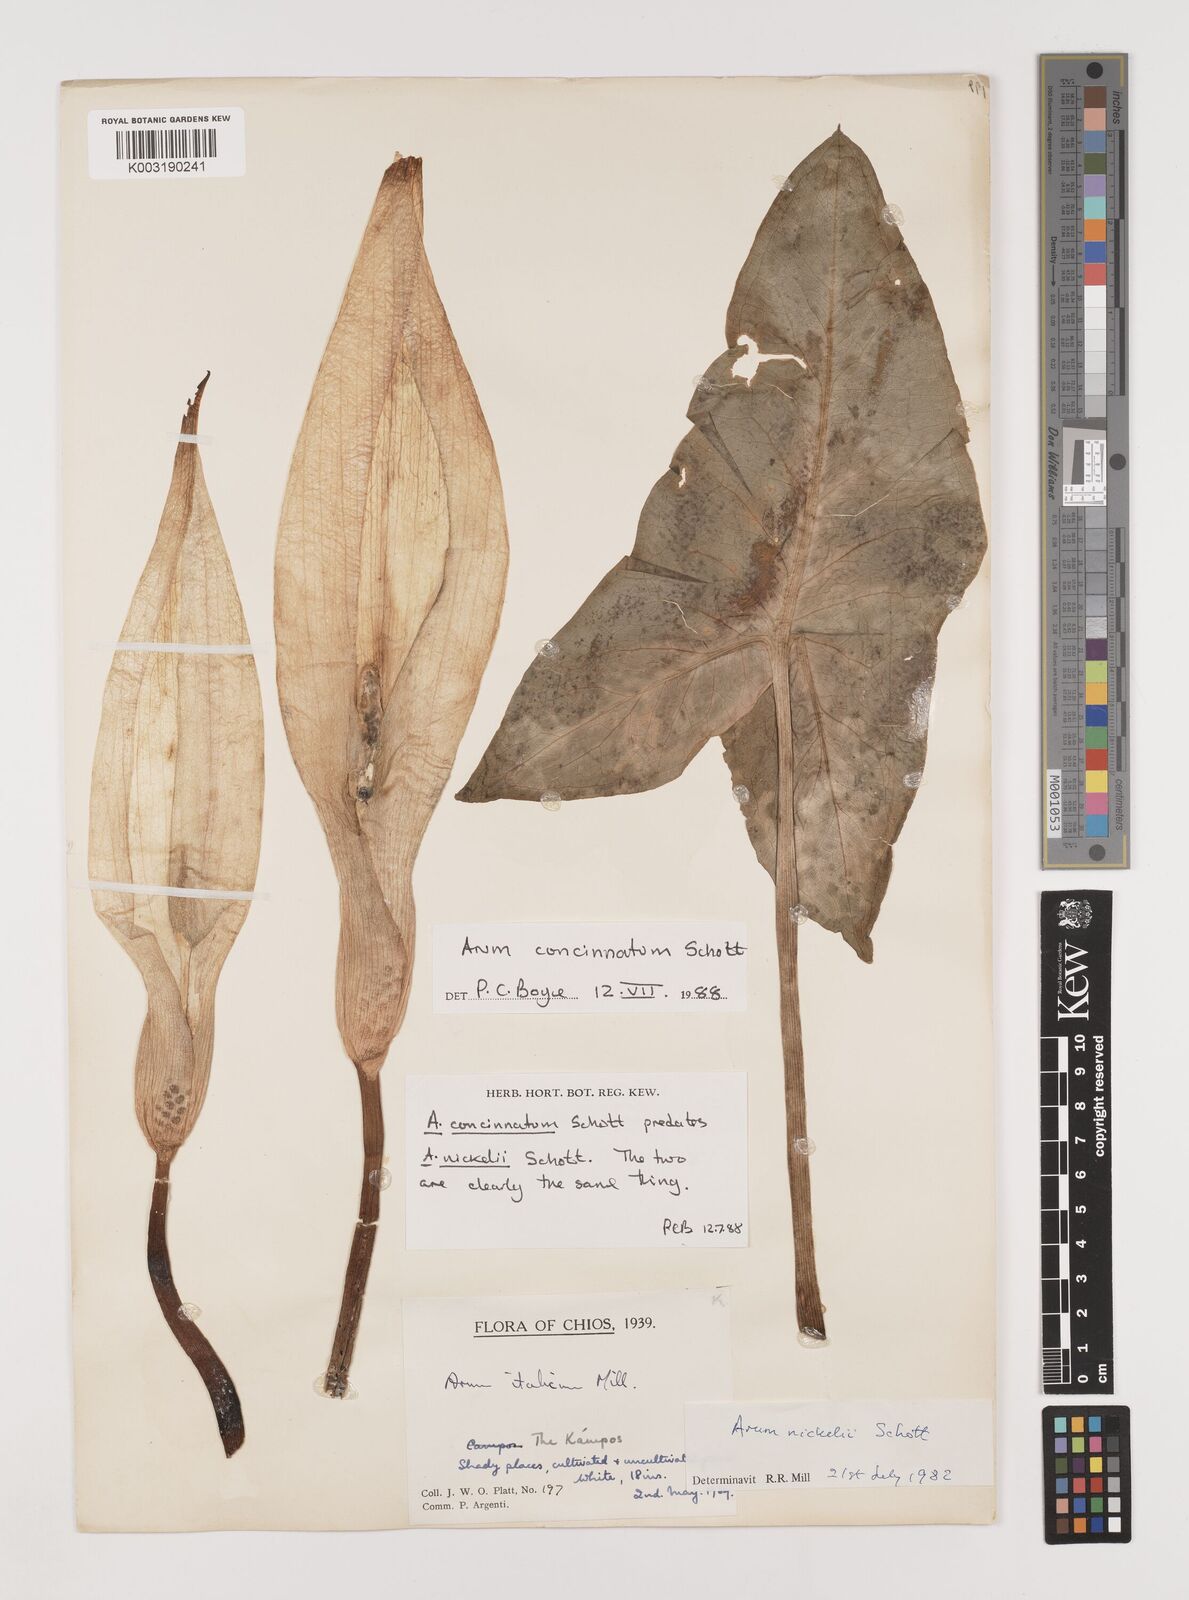 ROYAL BOTANIC GARDENS KEW
K003190241
197
Arum concinnatum Schott
DET P. C. Boyce 12. VII. 1988
HERB. HORT. BOT. REG. KEW.
A. concinnatum Schott predates
A. nickelii Schott. The two
are clearly the same thing.
PCB 12.7.88
K
FLORA OF CHIOS, 1939.
Arum italicum Mill.
Campos The Kámpos
Shady places, cultivated + uncultivat
White, 18 ins.
2nd. May.
Coll. J. W. O. Platt, No. 197
Comm. P. Argenti.
Arum nickelii Schott
Determinavit R.R. Mill 21st July 1982
inches
centimetres
Density
Don Williams
M001053
Royal Botanic Gardens
Kew
0 1 2 3 4 5 6 7 8 9 10
cm
copyright reserved